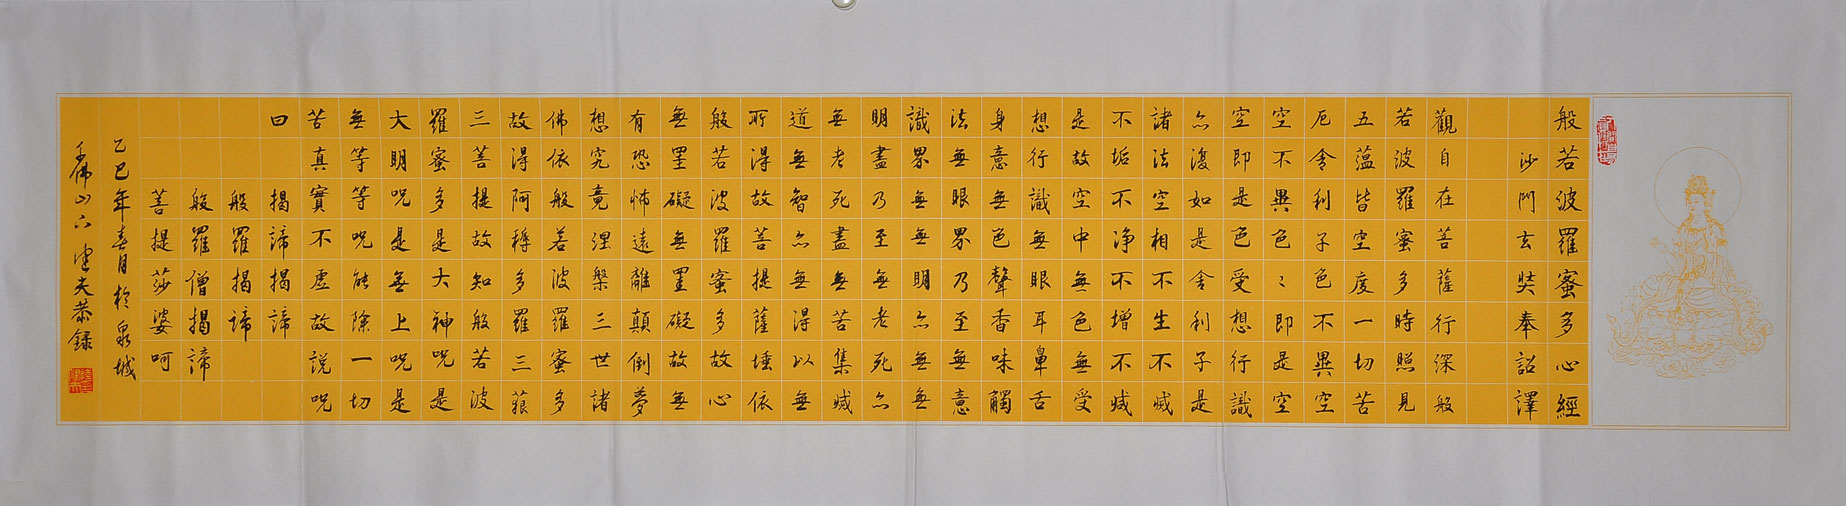 般若波羅蜜多心經
沙門玄奘奉詔譯
觀自在菩薩行深般
若波羅蜜多時照見
五蕰皆空度一切苦
厄舍利子色不異空
空不異色〻即是空
空即是色受想行識
亦復如是舍利子是
諸法空相不生不滅
不垢不净不增不減
是故空中無色無受
想行識無眼耳鼻舌
身意無色聲香味觸
法無眼界乃至無意
識界無無明亦無無
明盡乃至無老死亦
無老死盡無苦集滅
道無智亦無得以無
所得故菩提薩埵依
般若波羅蜜多故心
無罣礙無罣礙故無
有恐怖遠離顛倒夢
想究竟涅槃三世諸
佛依般若波羅蜜多
故得阿耨多羅三藐
三菩提故知般若波
羅蜜多是大神咒是
大明咒是無上咒是
無等等咒能除一切
苦真實不虛故說咒
曰揭諦揭諦
般羅揭諦
般羅僧揭諦
菩提莎婆呵
乙巳年春月於泉城
千佛山下建夫恭録